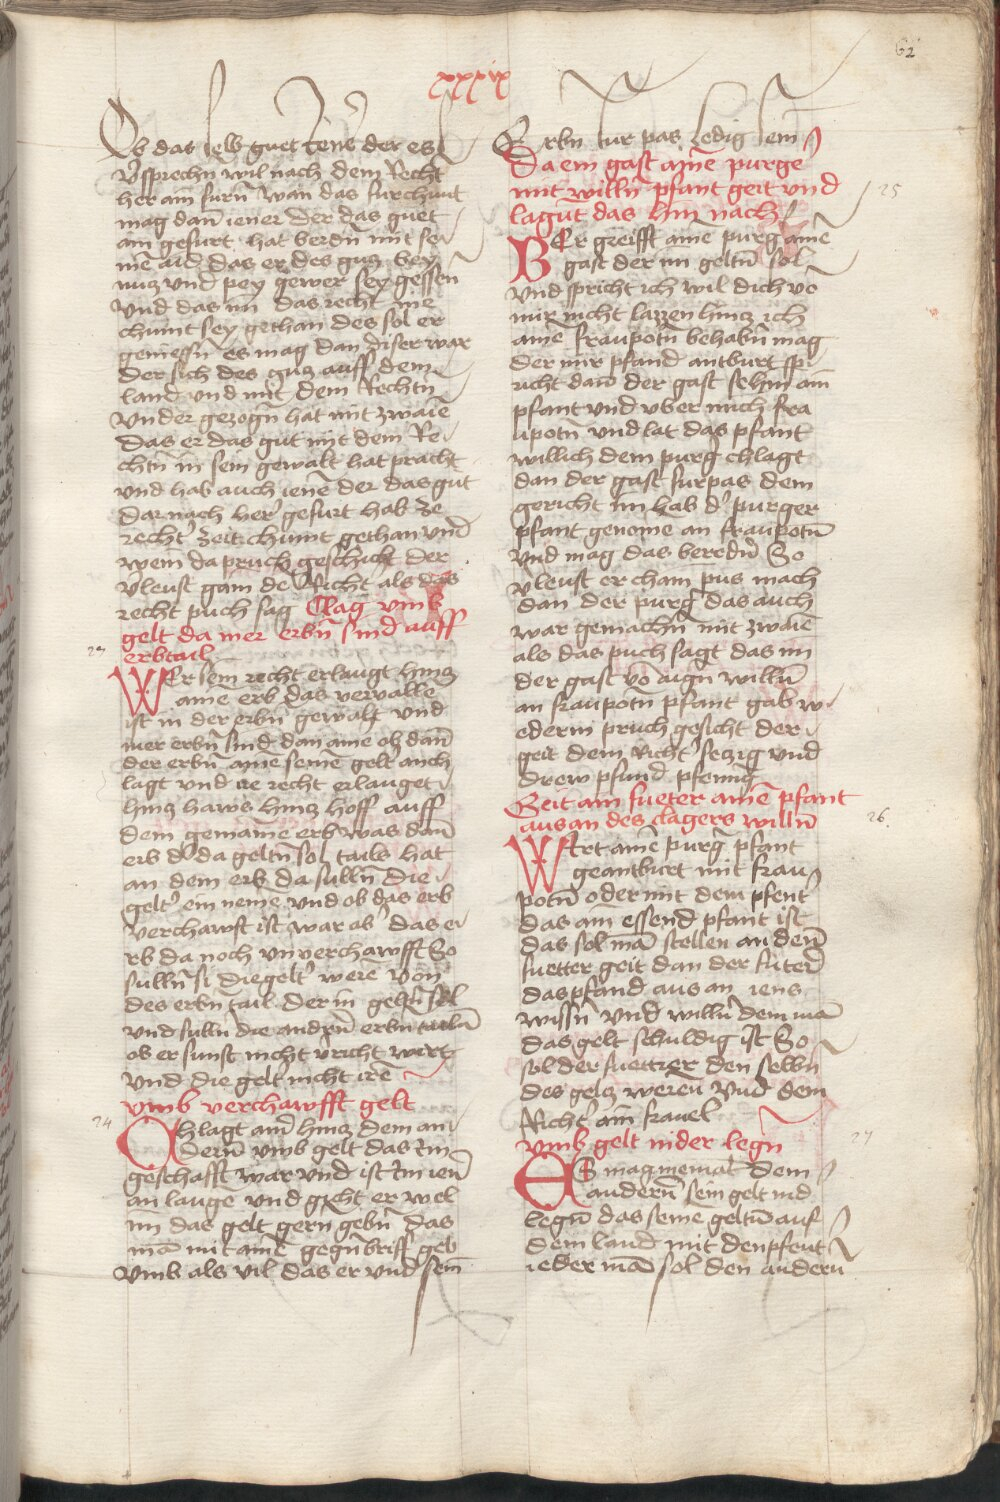 62
xxxix
Ob das selb guet ienˢ der es
v̉sprechn wil nach dem Recht
her am furn wan das furchunt
mag dan̄ iener der das guet
ain gefurt hat berdn̄ mit sei
nē aid das er des gutz bey
nutz vnd pey gewer sey gessen
vnd das im das recht nie
chumt sey gethan des sol er
geniessn̄ es mag dan diser war
der sich des gutz auff dem
land vnd mit dem Rechtn̄
vnder gezogn̄ hat mit zwaiē
das er das gut mit dem Re
chtn̄ in sein gewalt hat pracht
vnd hab auch ienē der das gut
darnach her gefurt hab ze
recht̉ zeit chumt gethan vnd
wem da pruch geschicht der
v̉leust gam dē Richt als das
recht puch sag Clag vmb
gelt da mer erbn̄ sind auff
erbtail
23
WEr sein recht erlaugt hintz
aine erb das vervalle
ist in der erbn̄ gewalt vnd
mer erbn̄ sind dan aine ob dan̄
der erbn̄ aine seinē gelt auch
lagt vnd ire recht erlauget
hintz haws hintz hoff auff
dem gemaine erb was dan̄
erb d̉ da geltn̄ sol tails hat
an dem erb da sulln̄ die
gelt̉ ein neme vnd ob das erb
verchawft ist war ab̉ das e
rb da noch vnverchawfft So
sulln̄ si die gelt̉ were von
des erbn̄ tail der in geltn̄ sol
vnd sulln die andrn̄ erbn tailn̄
ob er sunst nicht v̉richt wirt
vnd die gelt̉ nicht ire
vmb verchawfft gelt
24
Chlagt ain̉ hintz dem an
dern̄ vmb gelt das im
geschafft war vnd ist im ien̉
an lauge vnd gicht er wel
im das gelt gern gebn̄ das
mā mit aine gegn̄briff geb
vmb als vil das er vnd sein
Erbn fur pas ledig sein
Da ein gast aine purge
mit willn̄ pfant geit vnd
lagut das hin nach
25
BEr greifft aine purg̉ ainē
gast der im geltn̄ sol
vnd spricht ich wil dich vō
mir nicht lazzen hintz ich
aine fraupotn̄ behabn̄ mag
der mir pfand antburt sp
richt dan̄ der gast sehin ain
pfant vnd vber mich fra
upotn̄ vnd lat das pfant
willich dem purg̉ chlagt
dan der gast furpas dem
gericht im hab d̉ purger
pfant genome an fraupotn̄
vnd mag das beredn̄ So
v̉leust er chain pus mach
dan der purg̉ das auch
war gemachn̄ mit zwaiē
als das puch sagt das im
der gast vō aign̄ willn̄
an fraupotn̄ pfant gab w
ederm pruch gesicht der
geit dem Richt̉ setzig vnd
drew pfund pfennig
Geit ain fueter ainē pfant
aus an des clagers willn̄
26.
WIrt ainē purg̉ pfant
geantburt mit frau
potn̄ oder mit dem pfent
das ain essend pfant ist
das sol mā stellen an den̄
fuetter geit dan der futer̉
das pfand aus an iens
wissn̄ vnd willn̄ dem mā
das gelt schuldig ist So
sol der fuettrer den selbn
des geltz weren vnd dem
Richt̉ ain frauel
vmb gelt nider legn̄
27
ES mag niemāt dem
andern̄ sein gelt nid
legn̄ das seinē geltn̄ auf
dem land mit den pfent
ieder mā sol den andern